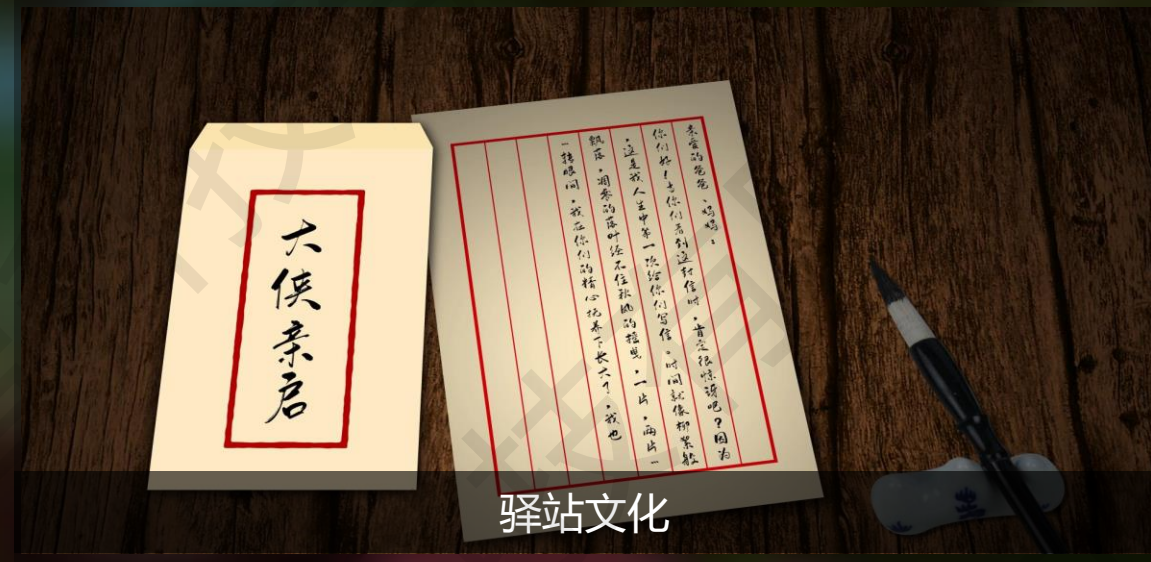 大侠亲启
亲爱的爸爸、妈妈：
你们好！当你们看到这封信时，肯定很惊讶吧？因为
，这是我人生中第一次给你们写信。时间就像柳絮般
飘落，凋零的落叶经不住秋风的摇曳，一片，两片一
一转眼间，我在你们的精心抚养下长大了，我也
驿站文化